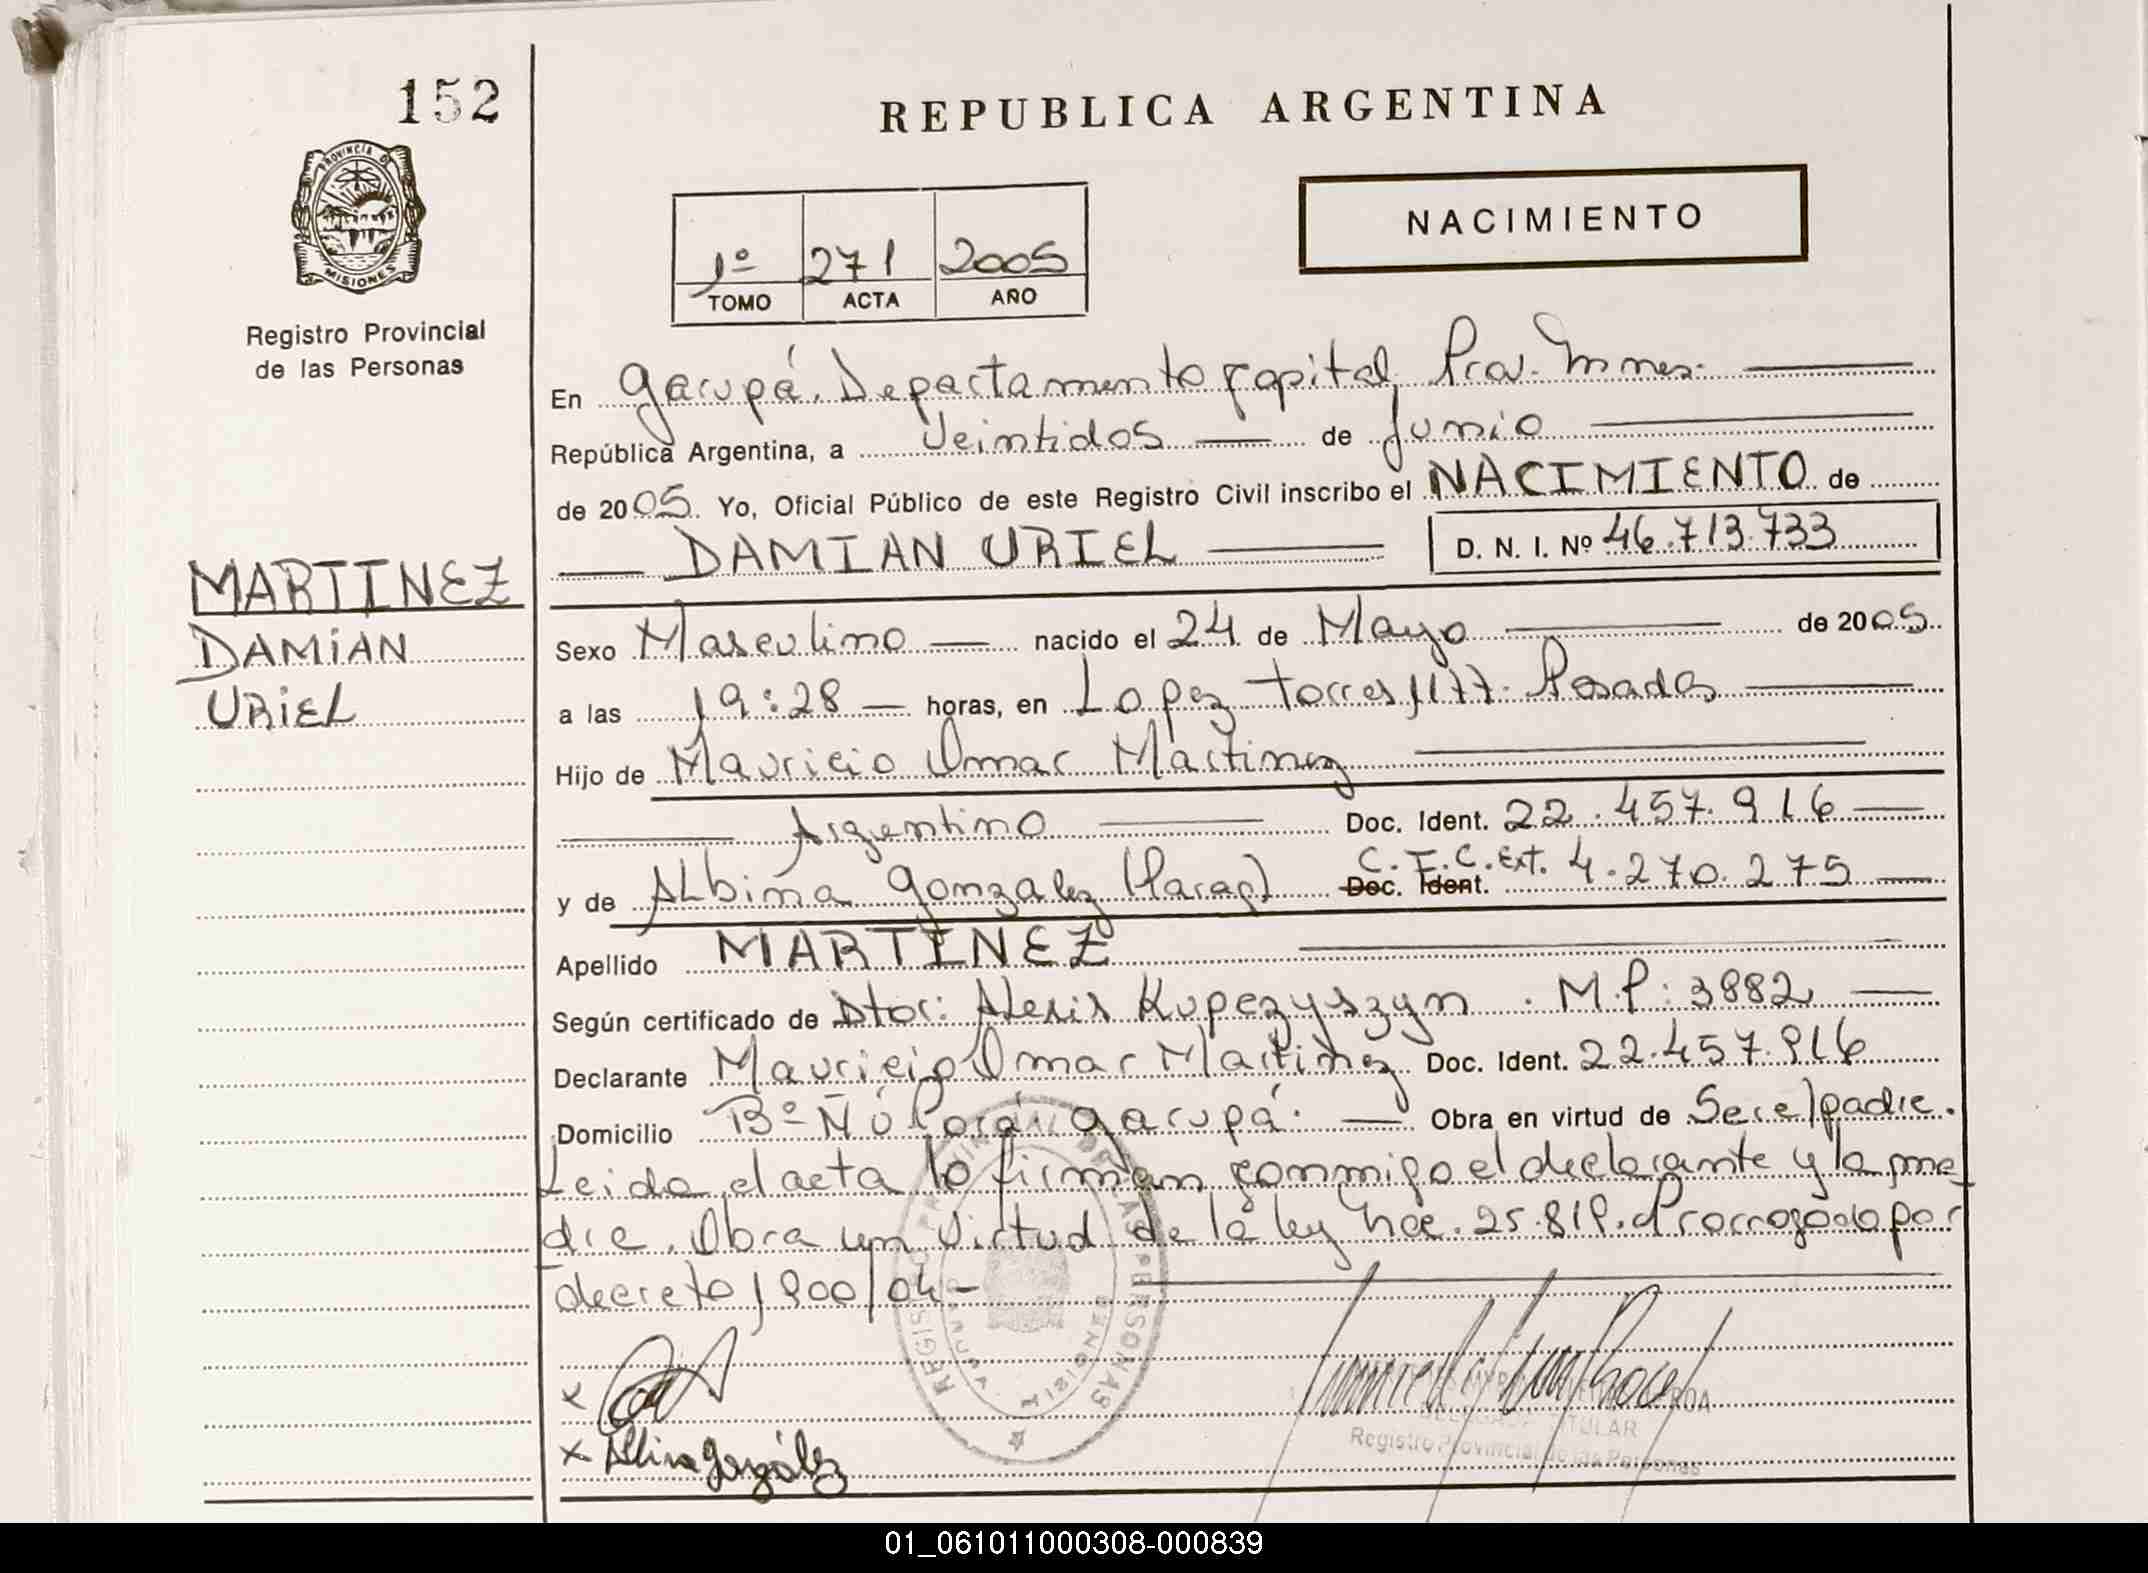 152
REPUBLICA ARGENTINA
PROVINCIA DE
MISIONES
Registro Provincial
de las Personas
NACIMIENTO
1º 271 2005
TOMO ACTA AÑO
En Garupá. Departamento Capital, Prov. Mnes.
República Argentina, a Veintidos de Junio
de 2005. Yo, Oficial Público de este Registro Civil inscribo el NACIMIENTO de
DAMIAN URIEL D. N. I. Nº 46.713.733
MARTINEZ
DAMIAN
URIEL
Sexo Masculino nacido el 24 de Mayo de 2005.
a las 19:28 horas, en Lopez Torres 1177. Posadas
Hijo de Mauricio Omar Martinez
Argentino Doc. Ident. 22.457.916
y de Albina Gonzalez (Parag) Doc. Ident. C.I.C. Ext. 4.270.275
Apellido MARTINEZ
Según certificado de Dtor: Alexis Kupczyszyn. M.P: 3882
Declarante Mauricio Omar Martinez Doc. Ident. 22.457.916
Domicilio Bº Ñú Porá Garupá. Obra en virtud de Ser el padre.
Leida el acta lo firman conmigo el declarante y la ma
dre. Obra en virtud de la ley nac. 25.819. Prorrogado por
decreto 1900/04-
REGISTRO PROVINCIAL DE LAS PERSONAS
MISIONES
x
x Albina González
DELEGADA TITULAR
Registro Provincial de las Personas
01_061011000308-000839